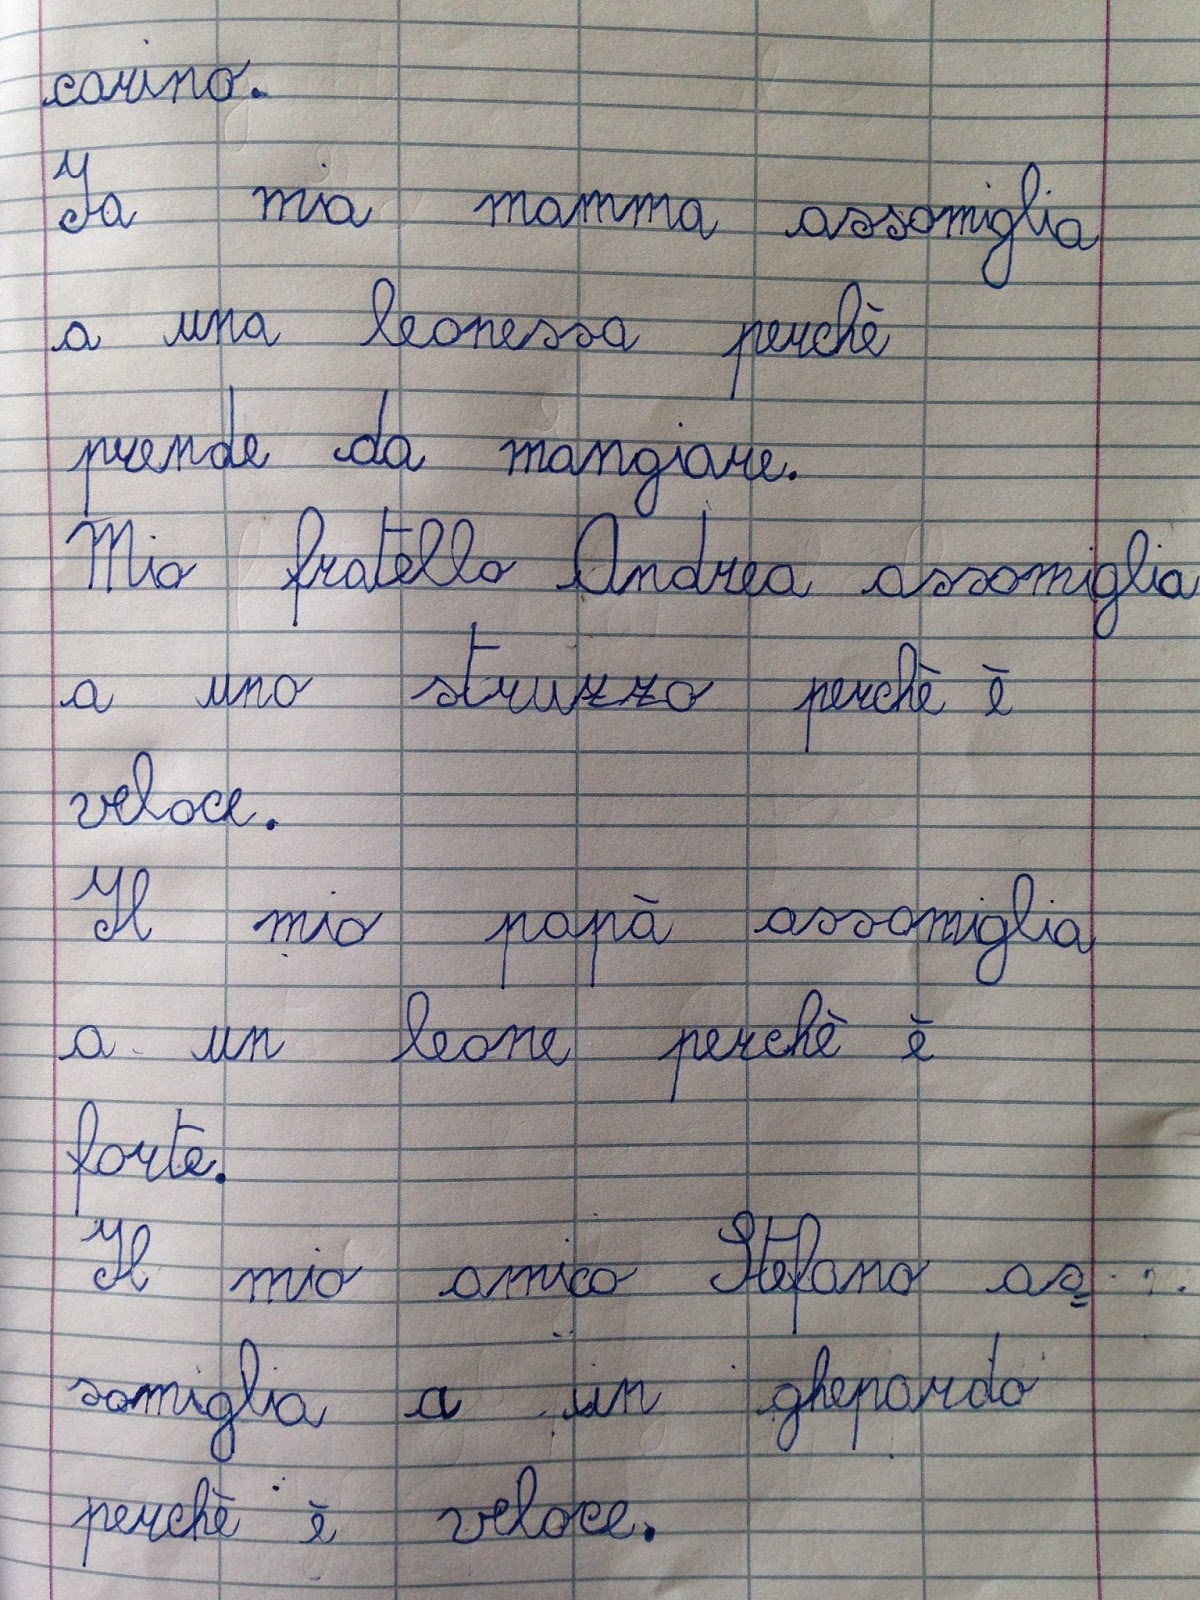 carino.
La mia mamma assomiglia
a una leonessa perchè
prende da mangiare.
Mio fratello Andrea assomiglia
a uno struzzo perchè è
veloce.
Il mio papà assomiglia
a un leone perchè è
forte.
Il mio amico Stefano as=
somiglia a un ghepardo
perchè è veloce.